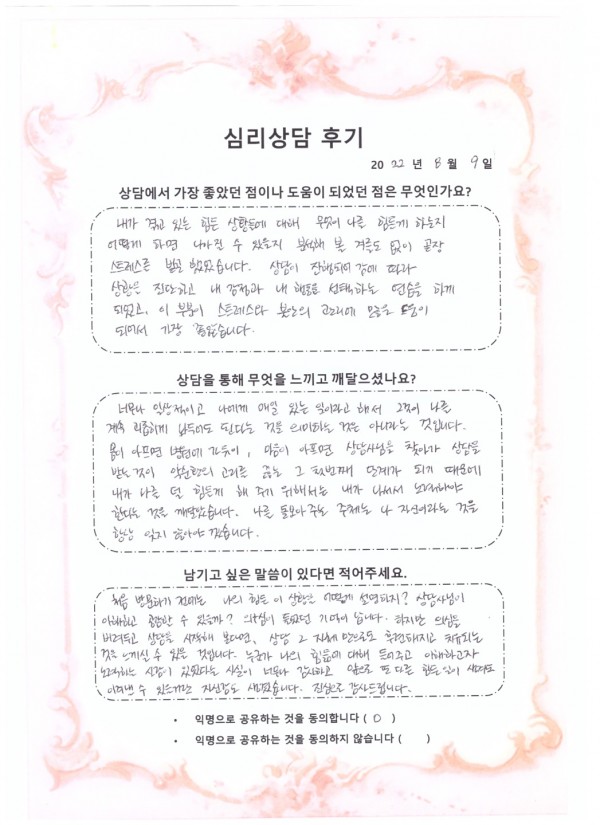 심리상담 후기
2022 년 8 월 9일
상담에서 가장 좋았던 점이나 도움이 되었던 점은 무엇인가요?
내가 겪고 있는 힘든 상황들에 대해 무엇이 나를 힘들게 하는지
어떻게 하면 나아질 수 있을지 분석해 볼 겨를도 없이 곧장
스트레스를 받곤 했었습니다. 상담이 진행되어 감에 따라
상황을 진단하고 내 감정과 내 행동을 선택하는 연습을 하게
되었고, 이 부분이 스트레스와 불안의 고리에 많은 도움이
되어서 가장 좋았습니다.
상담을 통해 무엇을 느끼고 깨달으셨나요?
너무나 일상적이고 나에게 매일 있는 일이라고 해서 그것이 나를
계속 괴롭히게 놔두어도 된다는 것을 의미하는 것은 아니라는 것입니다.
몸이 아프면 병원에 가듯이, 마음이 아프면 상담사님을 찾아가 상담을
받는 것이 악순환의 고리를 끊는 그 첫번째 단계가 되기 때문에
내가 나를 덜 힘들게 해 주기 위해서는 내가 나서서 노력해야
한다는 것을 깨달았습니다. 나를 돌보아 주는 주체는 나 자신이라는 것을
항상 잊지 말아야 겠습니다.
남기고 싶은 말씀이 있다면 적어주세요.
처음 방문하기 전에는 나의 힘든 이 상황은 어떻게 설명하지? 상담사님이
이해하고 공감할 수 있을까? 의심이 들었던 기억이 납니다. 하지만 의심을
버려두고 상담을 시작해 본다면, 상담 그 자체만으로도 후련해지고 치유되는
것을 느끼실 수 있을 것입니다. 누군가 나의 힘듦에 대해 들어주고 이해하고자
노력하는 시간이 있었다는 사실이 너무나 감사하고 앞으로 또 다른 힘든 일이 생겨도
이겨낼 수 있는 자신감도 생겼습니다. 진심으로 감사드립니다.
• 익명으로 공유하는 것을 동의합니다 ( O )
• 익명으로 공유하는 것을 동의하지 않습니다 ( )